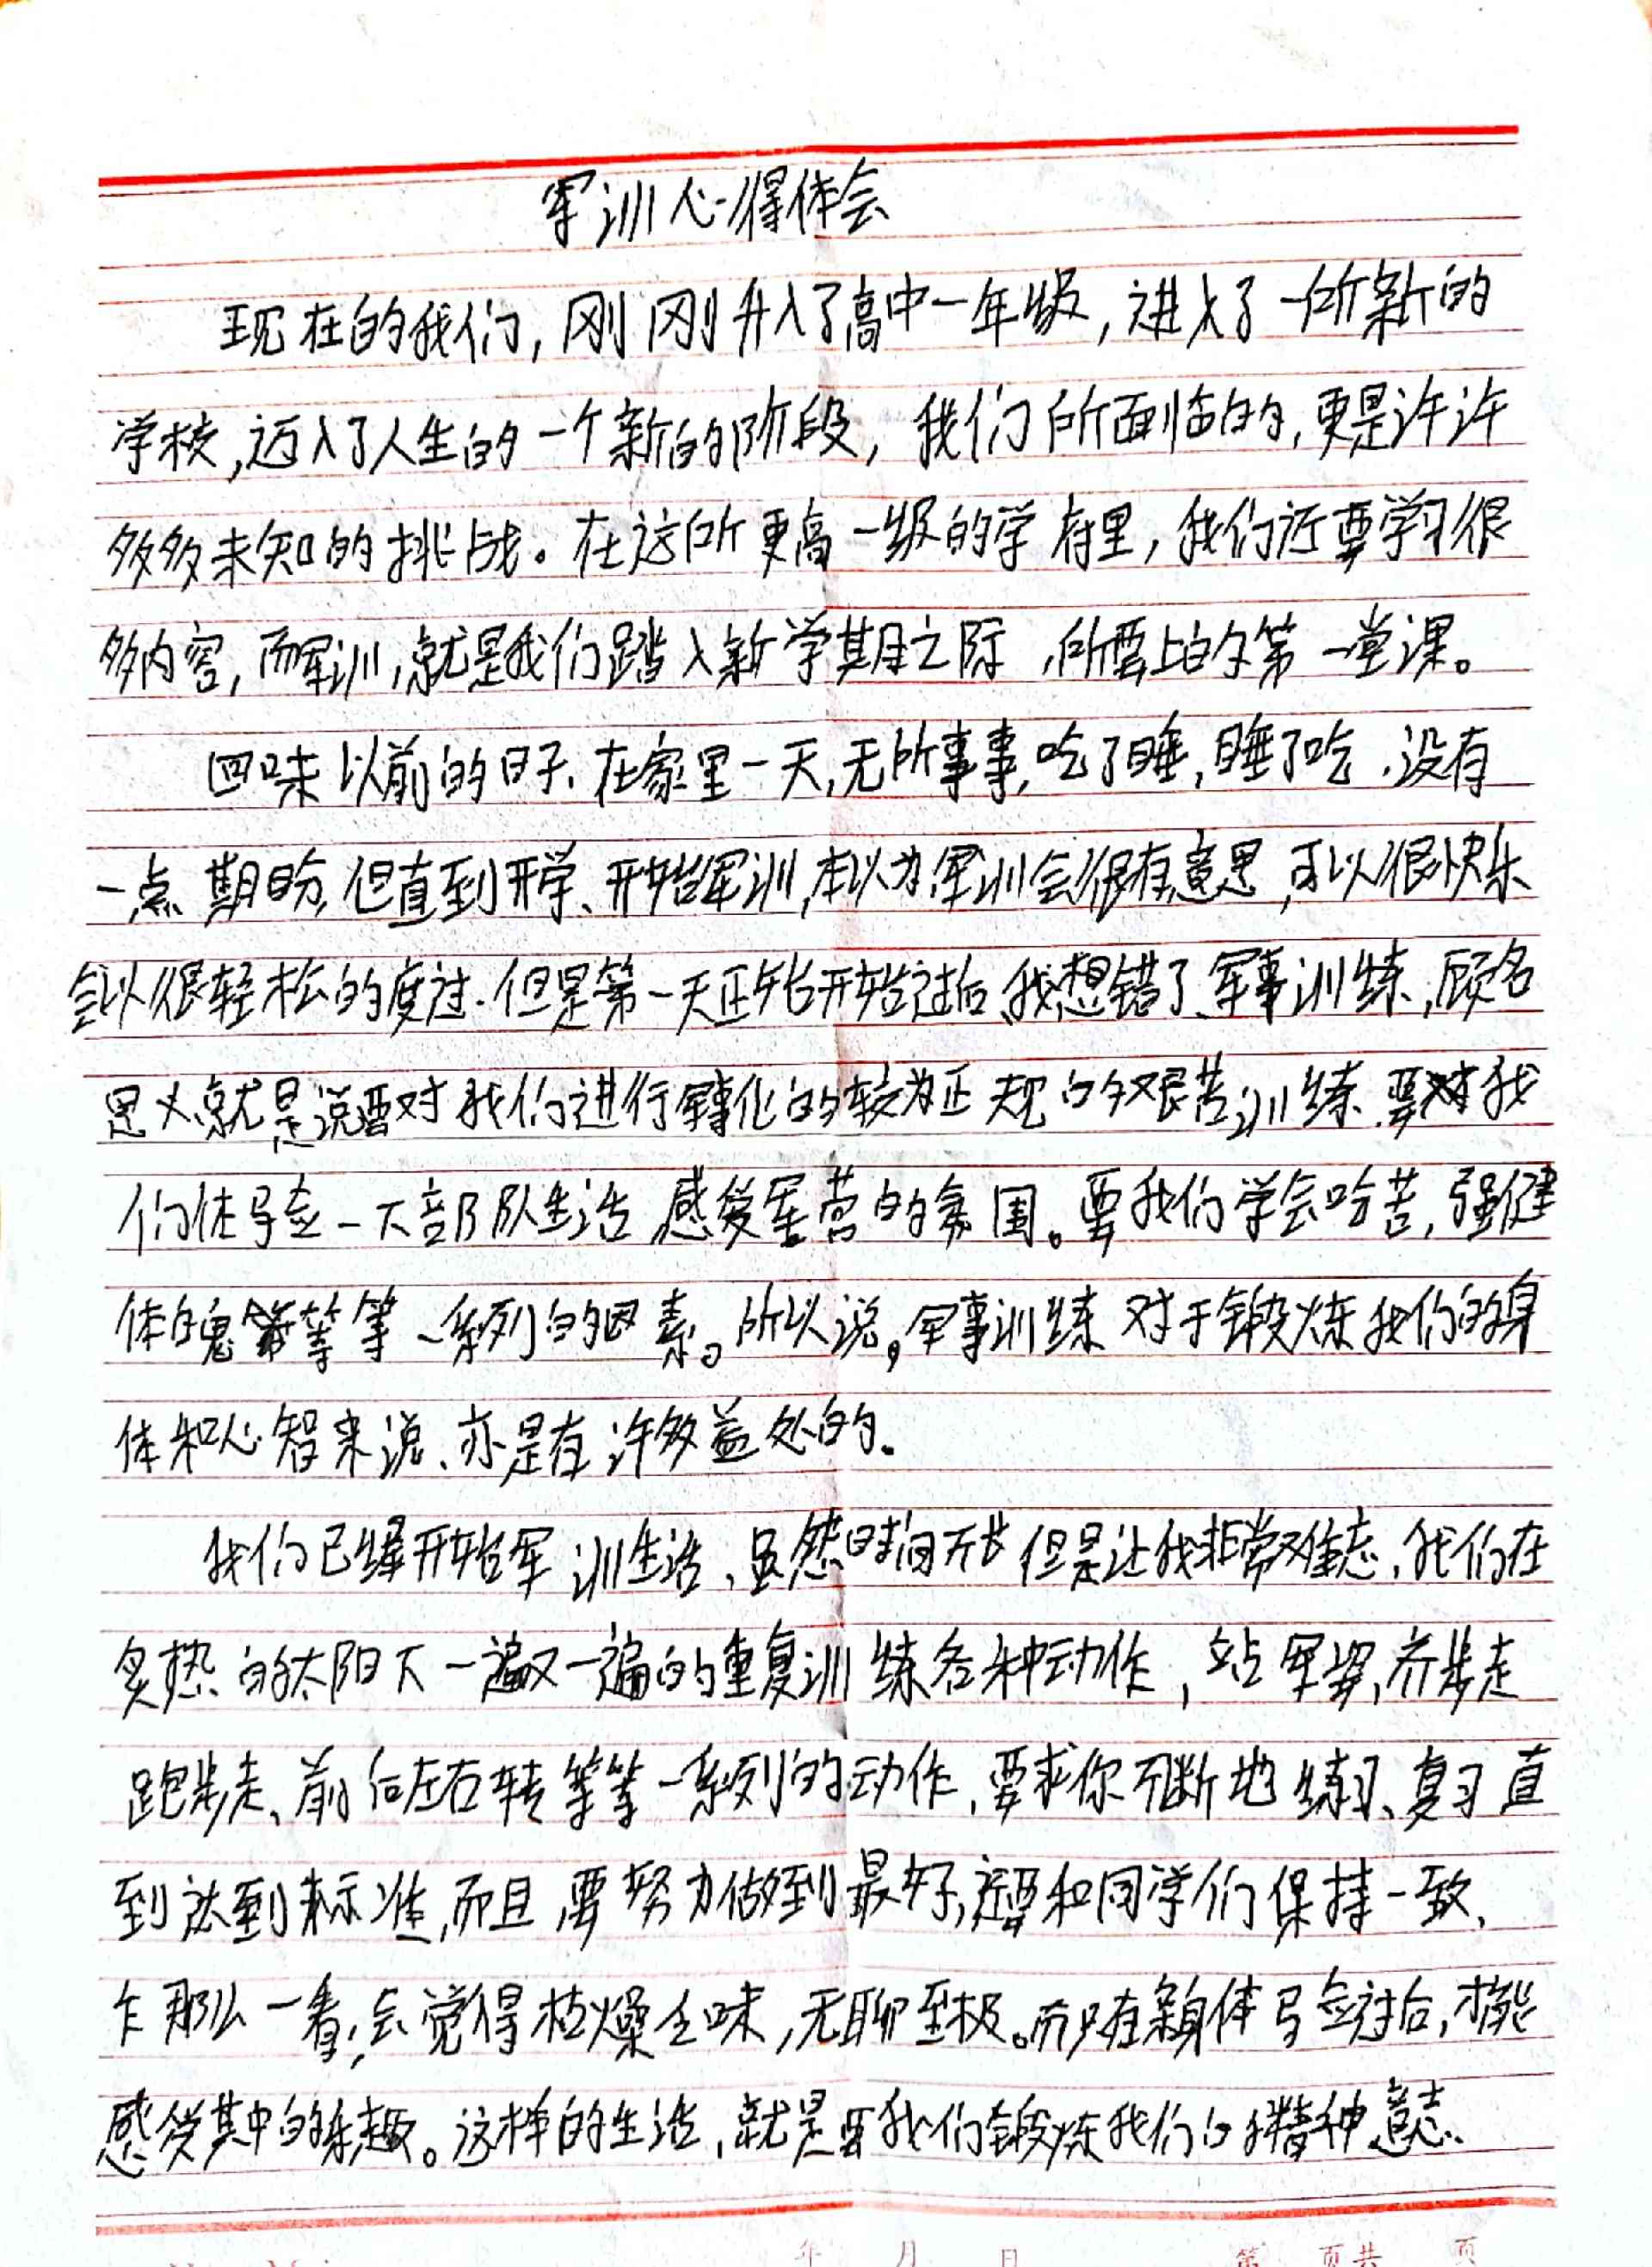 军训心得体会
现在的我们,刚刚升入了高中一年级,进入了一所新的
学校,迈入了人生的一个新的阶段,我们所面临的,更是许许
多多未知的挑战。在这所更高一级的学府里,我们还要学习很
多内容,而军训,就是我们踏入新学期之际,所要上的第一堂课。
回味以前的日子、在家里一天,无所事事,吃了睡,睡了吃、没有
一点期盼,但直到开学、开始军训,本以为军训会很有意思,可以很快乐
会以很轻松的度过.但是第一天正始开始过后,我想错了、军事训练,顾名
思义就是说要对我们进行军事化的较为正规的艰苦训练.要对我
们体验一下部队生活,感受军营的氛围。要我们学会吃苦,强健
体魄等等一系列的因素。所以说,军事训练对于锻炼我们的身
体和心智来说、亦是有许多益处的。
我们已经开始军训生活、虽然时间不长但是让我非常难忘、我们在
炙热的太阳下一遍又一遍的重复训练各种动作,站军姿,齐步走
跑步走、前后左右转等等一系列的动作,要求你不断地练习、复习直
到达到标准,而且,要努力做到最好,还要和同学们保持一致、
乍那么一看,会觉得枯燥乏味,无聊至极。而只有亲身体验过后,才能
感受其中的乐趣。这样的生活,就是要我们锻炼我们的精神意志、
年 月 日 第 页共 页